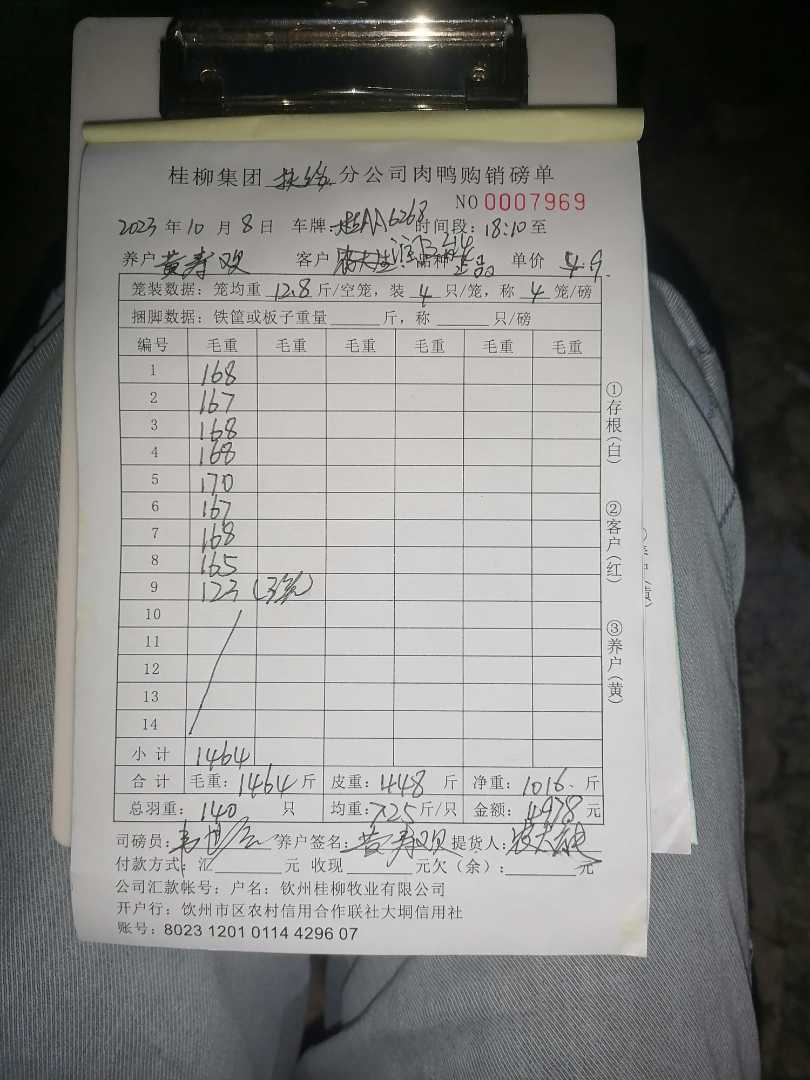 桂柳集团 分公司肉鸭购销磅单
NO 0007969
2023 年 10 月 8 日 车牌 6268 时间段: 18:10 至
养户 黄寿欢 客户 品种 正品 单价 4.9
笼装数据: 笼均重 12.8 斤/空笼, 装 4 只/笼, 称 4 笼/磅
捆脚数据: 铁筐或板子重量 斤, 称 只/磅
编号 毛重 毛重 毛重 毛重 毛重 毛重
1 168
2 167
3 168
4 168
5 170
6 167
7 168
8 165
9 123 (3笼)
10
11
12
13
14
小 计 1464
合 计 毛重: 1464 斤 皮重: 448 斤 净重: 1016 斤
总羽重: 140 只 均重: 7.25 斤/只 金额: 4978 元
司磅员: 养户签名: 黄寿欢 提货人:
付款方式: 汇 元 收现 元欠(余): 元
公司汇款帐号: 户名: 钦州桂柳牧业有限公司
开户行: 钦州市区农村信用合作联社大垌信用社
账号: 8023 1201 0114 4296 07
①存根(白)
②客户(红)
③养户(黄)